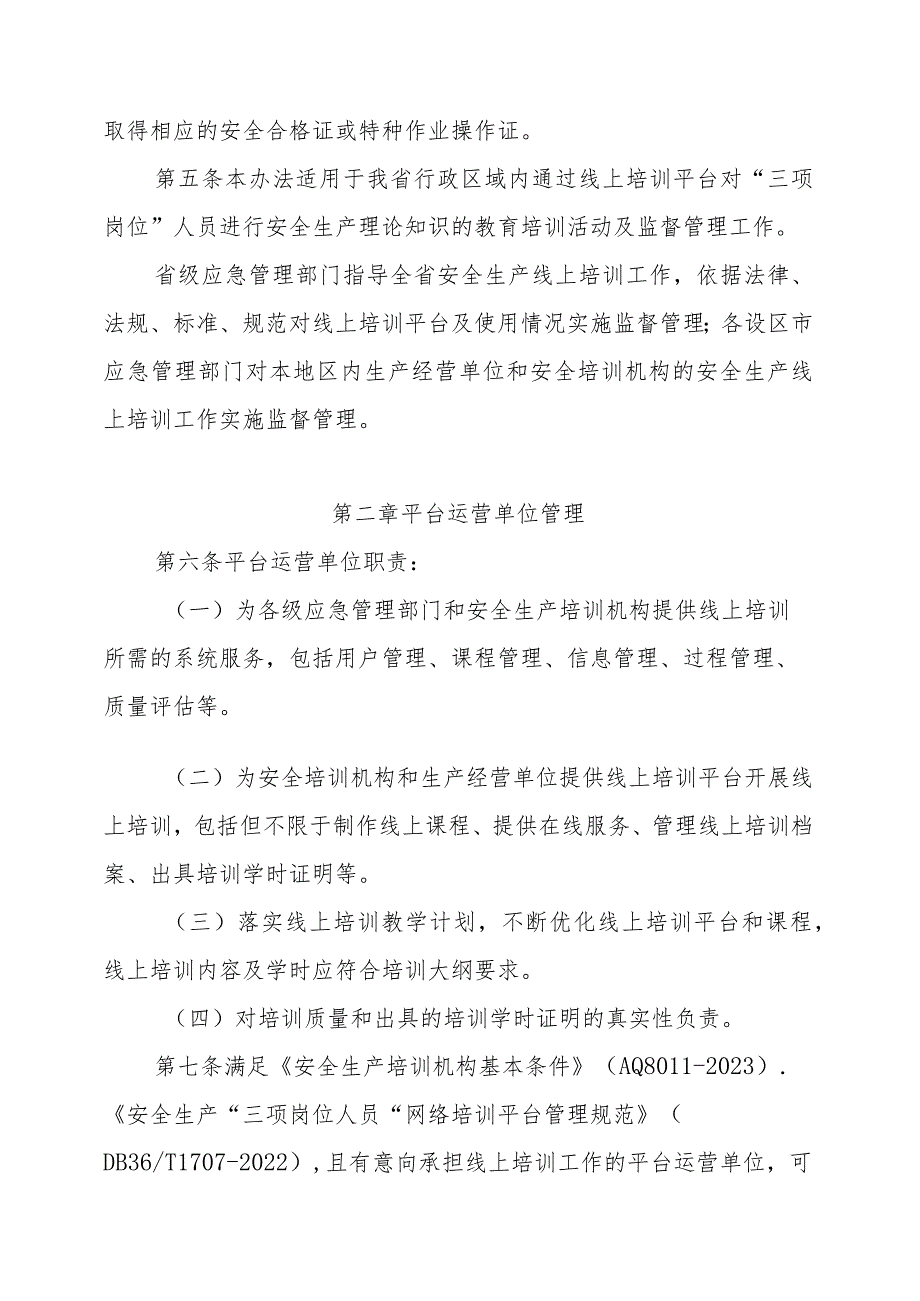 取得相应的安全合格证或特种作业操作证。
第五条本办法适用于我省行政区域内通过线上培训平台对“三项
岗位”人员进行安全生产理论知识的教育培训活动及监督管理工作。
省级应急管理部门指导全省安全生产线上培训工作，依据法律、
法规、标准、规范对线上培训平台及使用情况实施监督管理；各设区市
应急管理部门对本地区内生产经营单位和安全培训机构的安全生产线
上培训工作实施监督管理。
第二章平台运营单位管理
第六条平台运营单位职责：
（一）为各级应急管理部门和安全生产培训机构提供线上培训
所需的系统服务，包括用户管理、课程管理、信息管理、过程管理、
质量评估等。
（二）为安全培训机构和生产经营单位提供线上培训平台开展线
上培训，包括但不限于制作线上课程、提供在线服务、管理线上培训档
案、出具培训学时证明等。
（三）落实线上培训教学计划，不断优化线上培训平台和课程，
线上培训内容及学时应符合培训大纲要求。
（四）对培训质量和出具的培训学时证明的真实性负责。
第七条满足《安全生产培训机构基本条件》（AQ8011-2023）.
《安全生产“三项岗位人员“网络培训平台管理规范》（
DB36/T1707-2022）,且有意向承担线上培训工作的平台运营单位，可